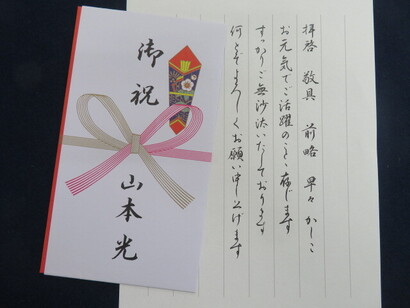 拝啓 敬具 前略 早々 かしこ
お元気でご活躍のことと存じます
すっかりご無沙汰いたしております
何とぞよろしくお願い申し上げます
御祝
山本光